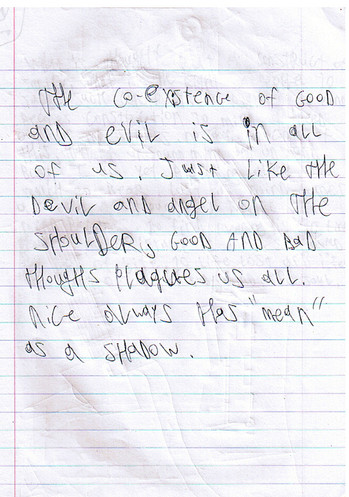 The co-existence of GOOD
AND evil is in all
of us. Just like the
Devil and angel on the
SHOULDER, GOOD AND BAD
thoughts plaques us all.
Nice always has "mean"
as a SHADOW.